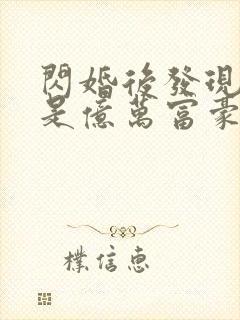 閃婚後發現
是億萬富豪
樸信惠